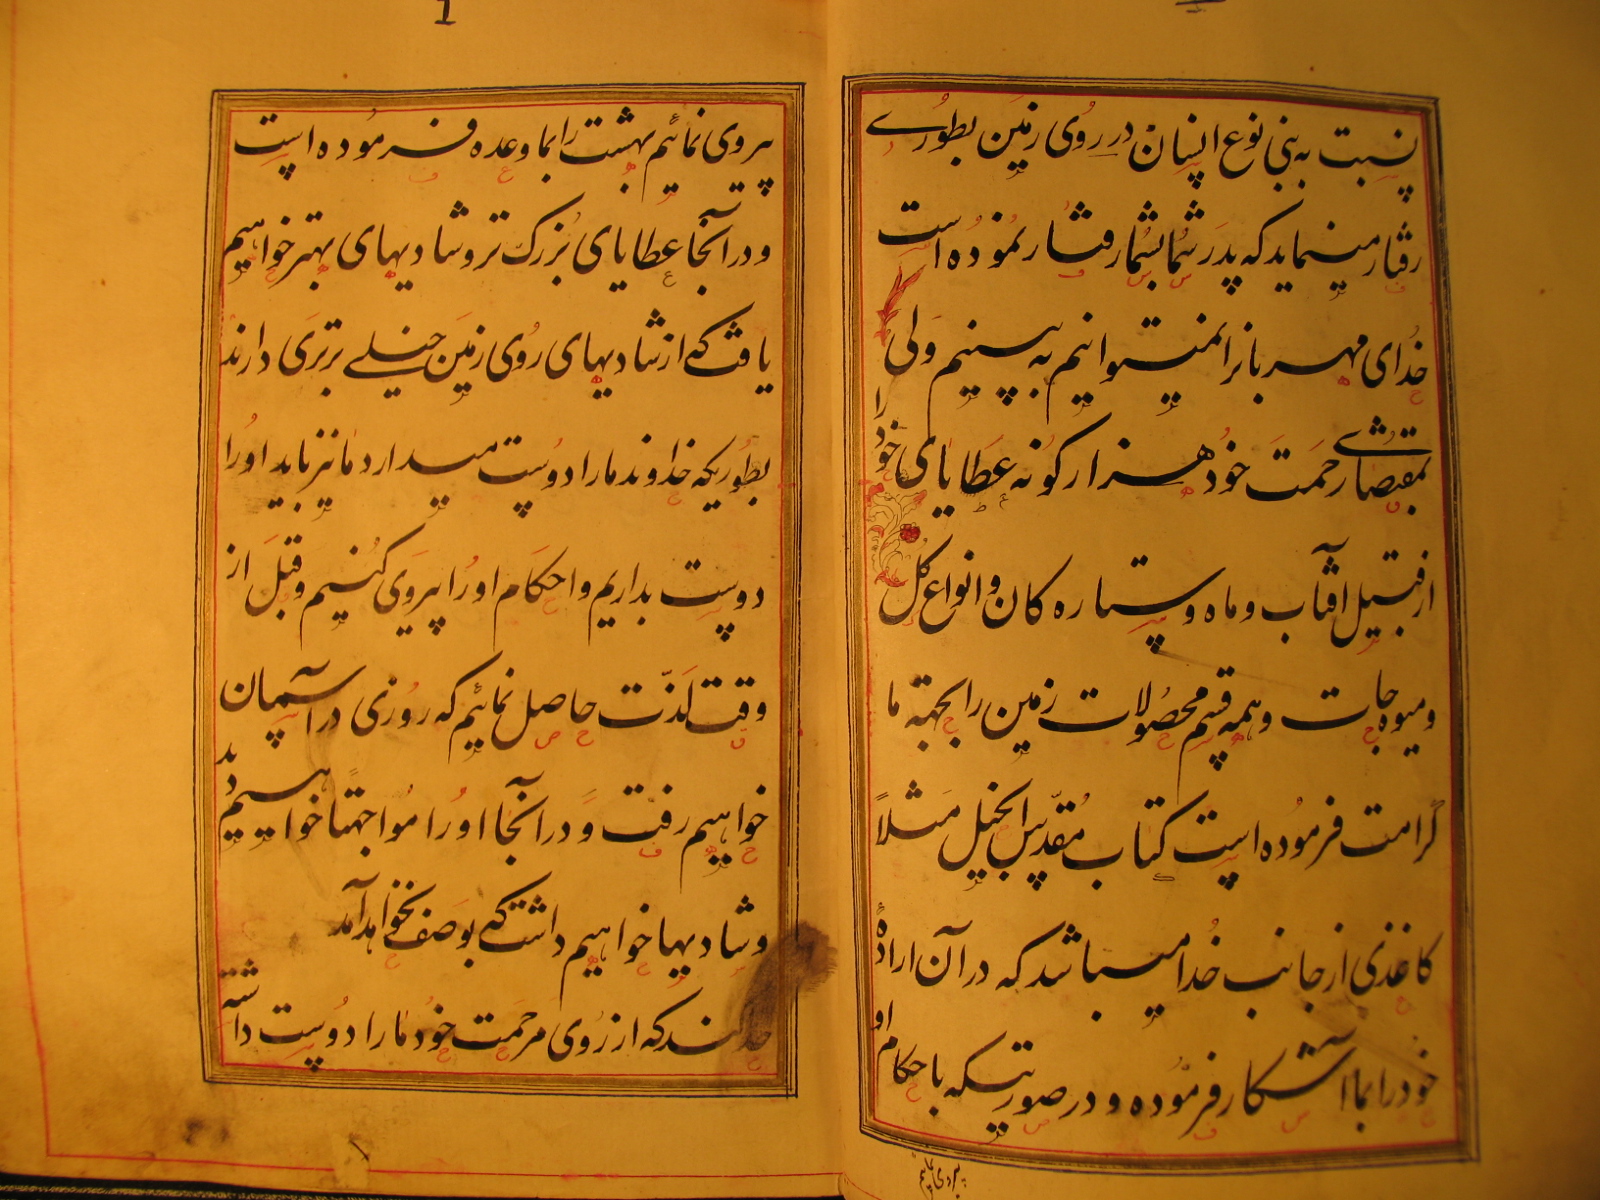 نسبت به بنی نوع انسان در روی زمین بطوری
رفتار مینماید که پدر شما بشما رفتار نموده است
خدای مهربانرا نمیتوانیم به بینیم ولی
بمقتضای رحمت خود هزار گونه عطایای خود را
از قبیل آفتاب و ماه و ستاره کان و انواع گل
و میوه جات و همه قسم محصولات زمین را بجهته ما
کرامت فرموده است کتاب مقدس انجیل مثلاً
کاغذی از جانب خدا میباشد که در آن اراده
خود را بما آشکار فرموده و در صورتیکه باحکام او
پیروی نمائیم
پیروی نمائیم بهشت را بما وعده فرموده است
و در آنجا عطایای بزرک تر و شادیهای بهتر خواهیم
یافت که از شادیهای روی زمین خیلے برتری دارند
بطوریکه خداوند ما را دوست میدارد ما نیز باید او را
دوست بداریم و احکام او را پیروی کنیم و قبل از
وقت لذت حاصل نمائیم که روزی در آسمان
خواهیم رفت و در آنجا او را مواجهتاً خواهیم دید
و شادیها خواهیم داشت که بوصف نخواهد آمد
که از روی مرحمت خود ما را دوست داشته
1
۱